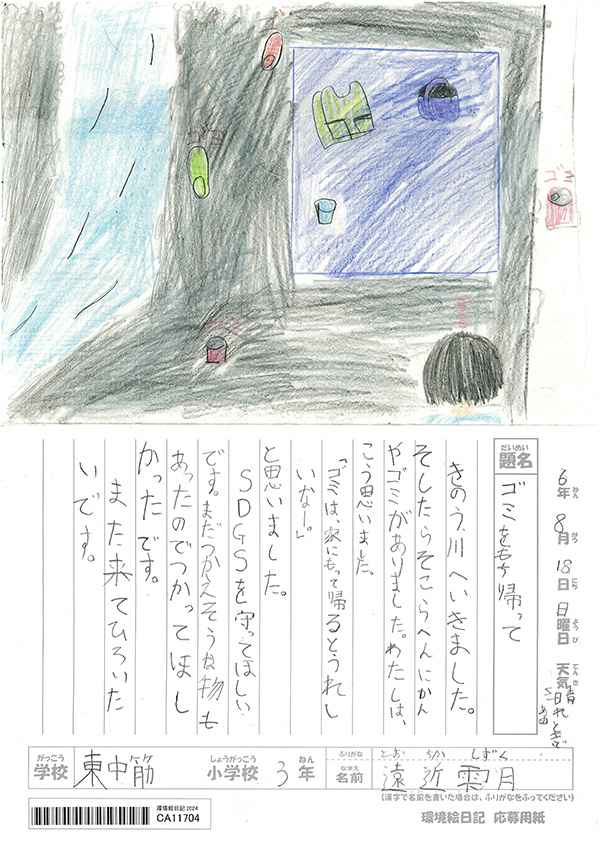 ゴミ
ゴミ
6年 8月 18日 日曜日 天気 晴れ
ねん がつ にち ようび てんき
だいめい
題名
ゴミをもち帰って
きのう、川へいきました。
そしたらそこらへんにかん
やゴミがありました。わたしは、
こう思いました。
「ゴミは、家にもって帰るとうれし
いなー。」
と思いました。
SDGSを守ってほしい
です。まだつかえそうな物も
あったのでつかってほし
かったです。
また来てひろいた
いです。
がっこう しょうがっこう ねん ふりがな とお ちか しずく
学校 東中筋 小学校 3年 なまえ 名前 遠近 雫月
(漢字で名前を書いた場合は、ふりがなをふってください)
環境絵日記2024
CA11704
環境絵日記 応募用紙